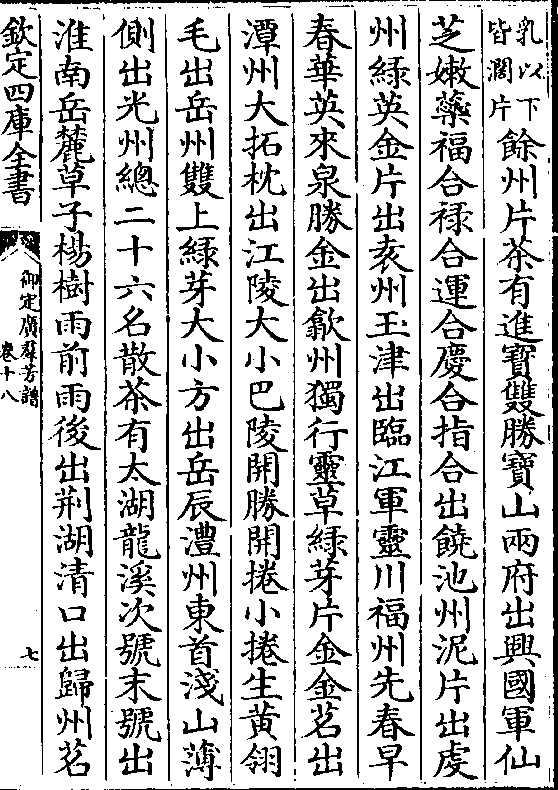 乳以下
皆濶片
餘州片茶有進寳雙勝寳山兩府出興國軍仙
芝嫩蘂福合禄合運合慶合指合出饒池州泥片出䖍
州緑英金片出袁州玉津出臨江軍靈川福州先春早
春華英來泉勝金出歙州獨行靈草緑芽片金金茗出
潭州大拓枕出江陵大小巴陵開勝開捲小捲生黄翎
毛出岳州雙上緑芽大小方出岳辰澧州東首淺山薄
側出光州總二十六名散茶有太湖龍溪次號末號出
淮南岳麓草子楊樹雨前雨後出荆湖清口出歸州茗
欽定四庫全書
御定廣羣芳譜
卷十八
七